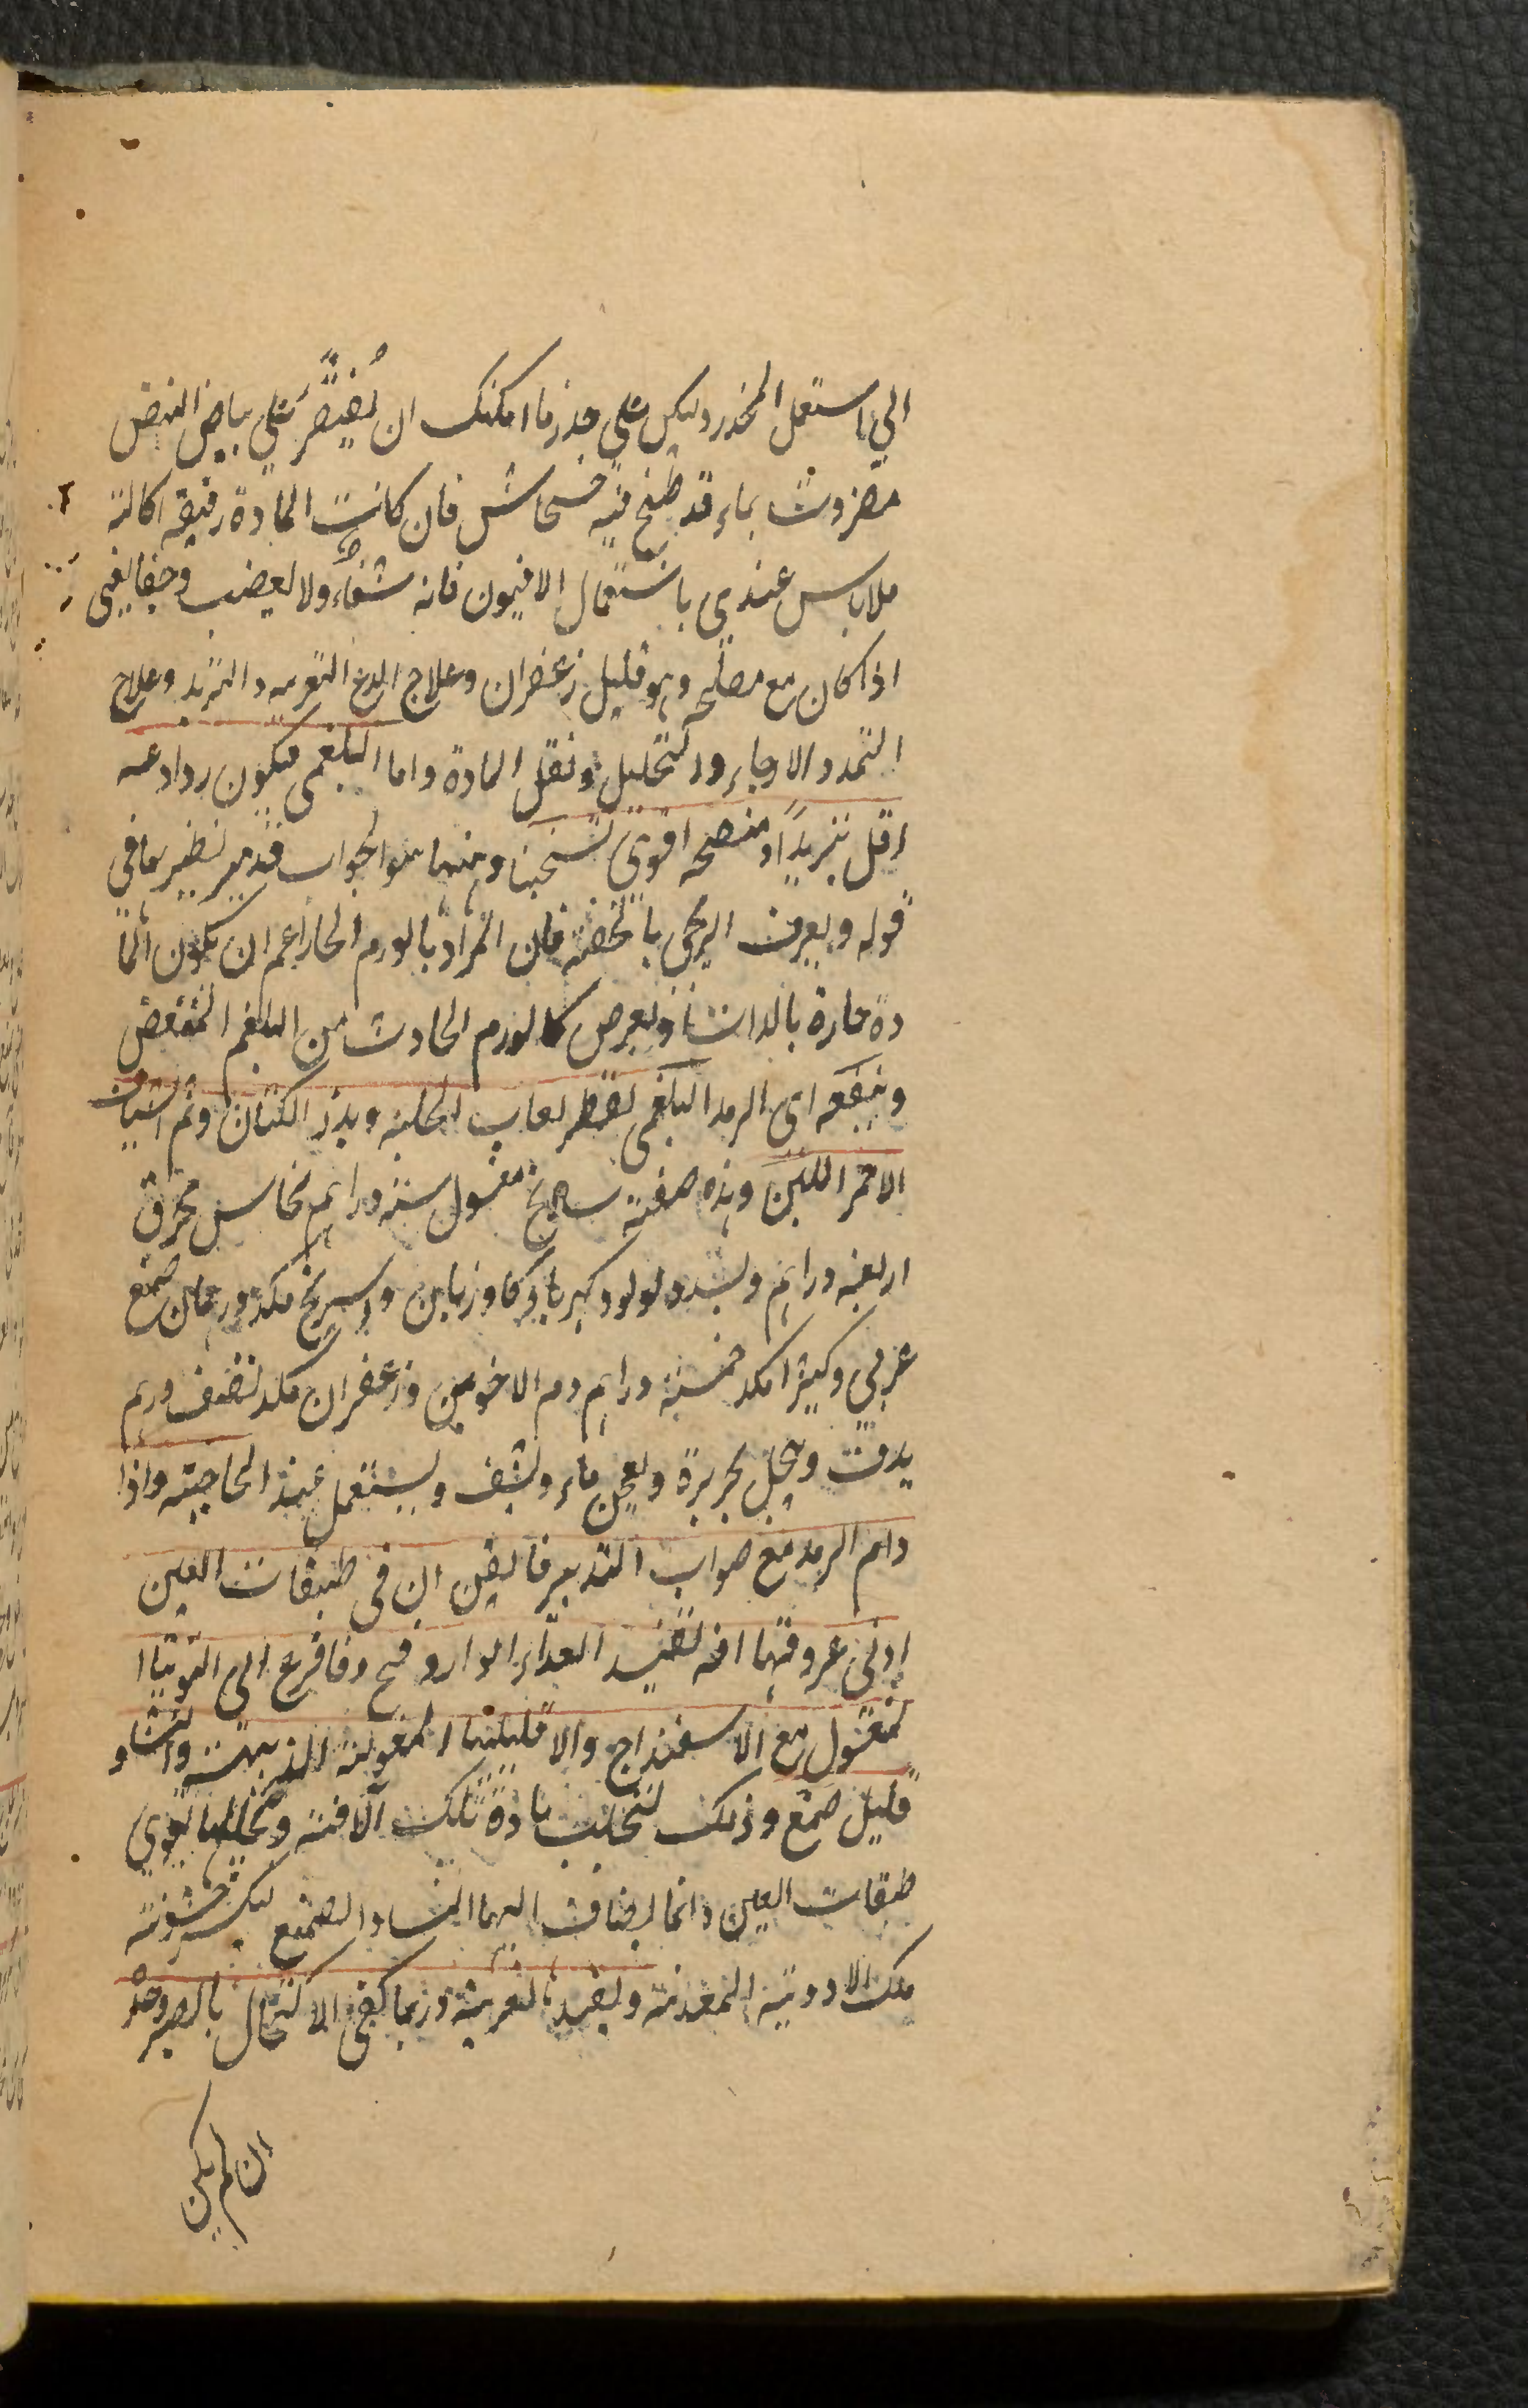 الي استعمل المخدر وليكن علي حذر ما امكنك ان يُقتصر علي بياض البيض
مضروب بماء قد طبخ فيه خشخاش فان كانت المادة رقيقة اكالة
فلا باس عندي باستعمال الافيون فانه شفاء ولا يعقب وجعا يعني
اذا كان مع مصلحه وهو قليل زعفران وعلاج اللدغ التغريه والتبريد وعلاج
التمدد الارخاء والتحليل ونقل المادة واما البلغمي فيكون رداعه
اقل تبريدًا ومنضجه اقوي تسخينا وههنا سوا لجواب قد مر نظيرهما في
قوله ويعرف الريحي بالخفة فان المراد بالورم الحار اعم ان يكون الما
دة حارة بالذات او بالعرض كالورم الحادث من البلغم المتعفن
وينفعه اى الرمد البلغمي تقطير لعاب الحلبة وبذر الكتان وثم الشياف
الاحمر اللين وهذه صفته سادنج مغسول ستة دراهم نحاس محرق
اربعة دراهم وبسد ولولو وكهربا وكاوزبان واسرنج مكد درهمان صمغ
عربي وكثيرا مكد خمسة دراهم دم الاخوين وزعفران مكد نصف درهم
يدق وينخل بحريرة ويعجن بماء ويشف ويستعمل عند الحاجة واذا
دام الرمد مع صواب التدبير فايقن ان في طبقات العين
اوفي عروقها افة تفسد الغذاء الوارد فح فافزع الى التوتيا ا
لمغسول مع الاسفيذاج والاقليميا المغسولة الذهبية والنشا و
قليل صمغ وذلك لتجلب مادة تلك الافة وتحللها وتقوي
طبقات العين وانما يضاف اليهما النشا والصمغ ليكسر خشونة
تلك الادوية المعدنية ويفيد التغرية وربما كفى الاكتحال بالصبر وحدة
ان لم يكن